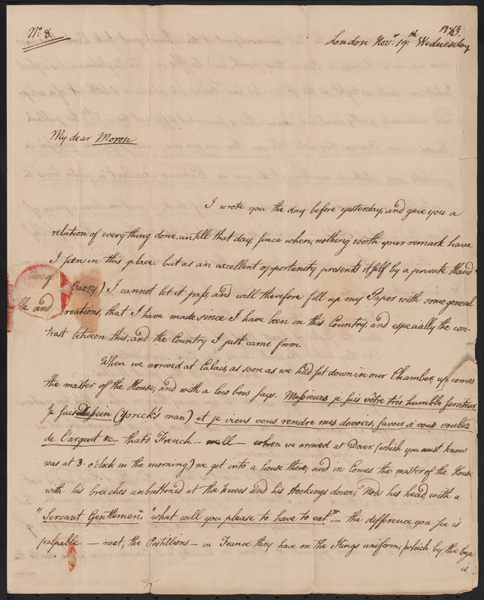 No. 8.
London Novr. 19th Wednesday
My dear Moron
I wrote you the day before yesterday, and gave you a
relation of everything done, untill that day, since when, nothing worth your remark have
I seen in this place. but as an excellent opportunity presents itself by a private Hand
(Carry) I cannot let it pass, and will therefore fill up my Paper with some general
that I have made since I have been in this Country, and especially the con-
trast between this, and the Country I just came from.
When we arrived at Calais, as soon as we had sot down in our Chamber, up comes
the master of the House, and with a low bow says. Messieurs je suis vôtre tres humble Serviteur
je suis Dessein (Yorick's man) et je viens vous rendre mes devoirs, savoir si vous voulez
de L'argent &c thats French - well - when we arrived at Dover (which you must know
was at 3 o'clock in the morning) we got into a house there, and in comes the master of the House
with his breeches unbuttoned at the Knees and his stockings down, Nods his head, with a
"Servant Gentlemen, "what will you please to have to eat" - the difference you see is
palpable - next, the Postillions - in France they have on the Kings uniform, (which by the bye
is